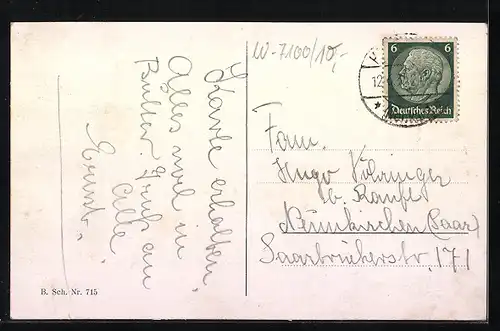 W-7100/10,-
Karte erhalten,
Alles noch in
Butter. Gruß an
Alle
Ernst.
6 6
Deutsches Reich
12.
Fam.
Hugo
b.
Neunkirchen (Saar)
Saarbrückerstr. 171
B. Sch. Nr. 715